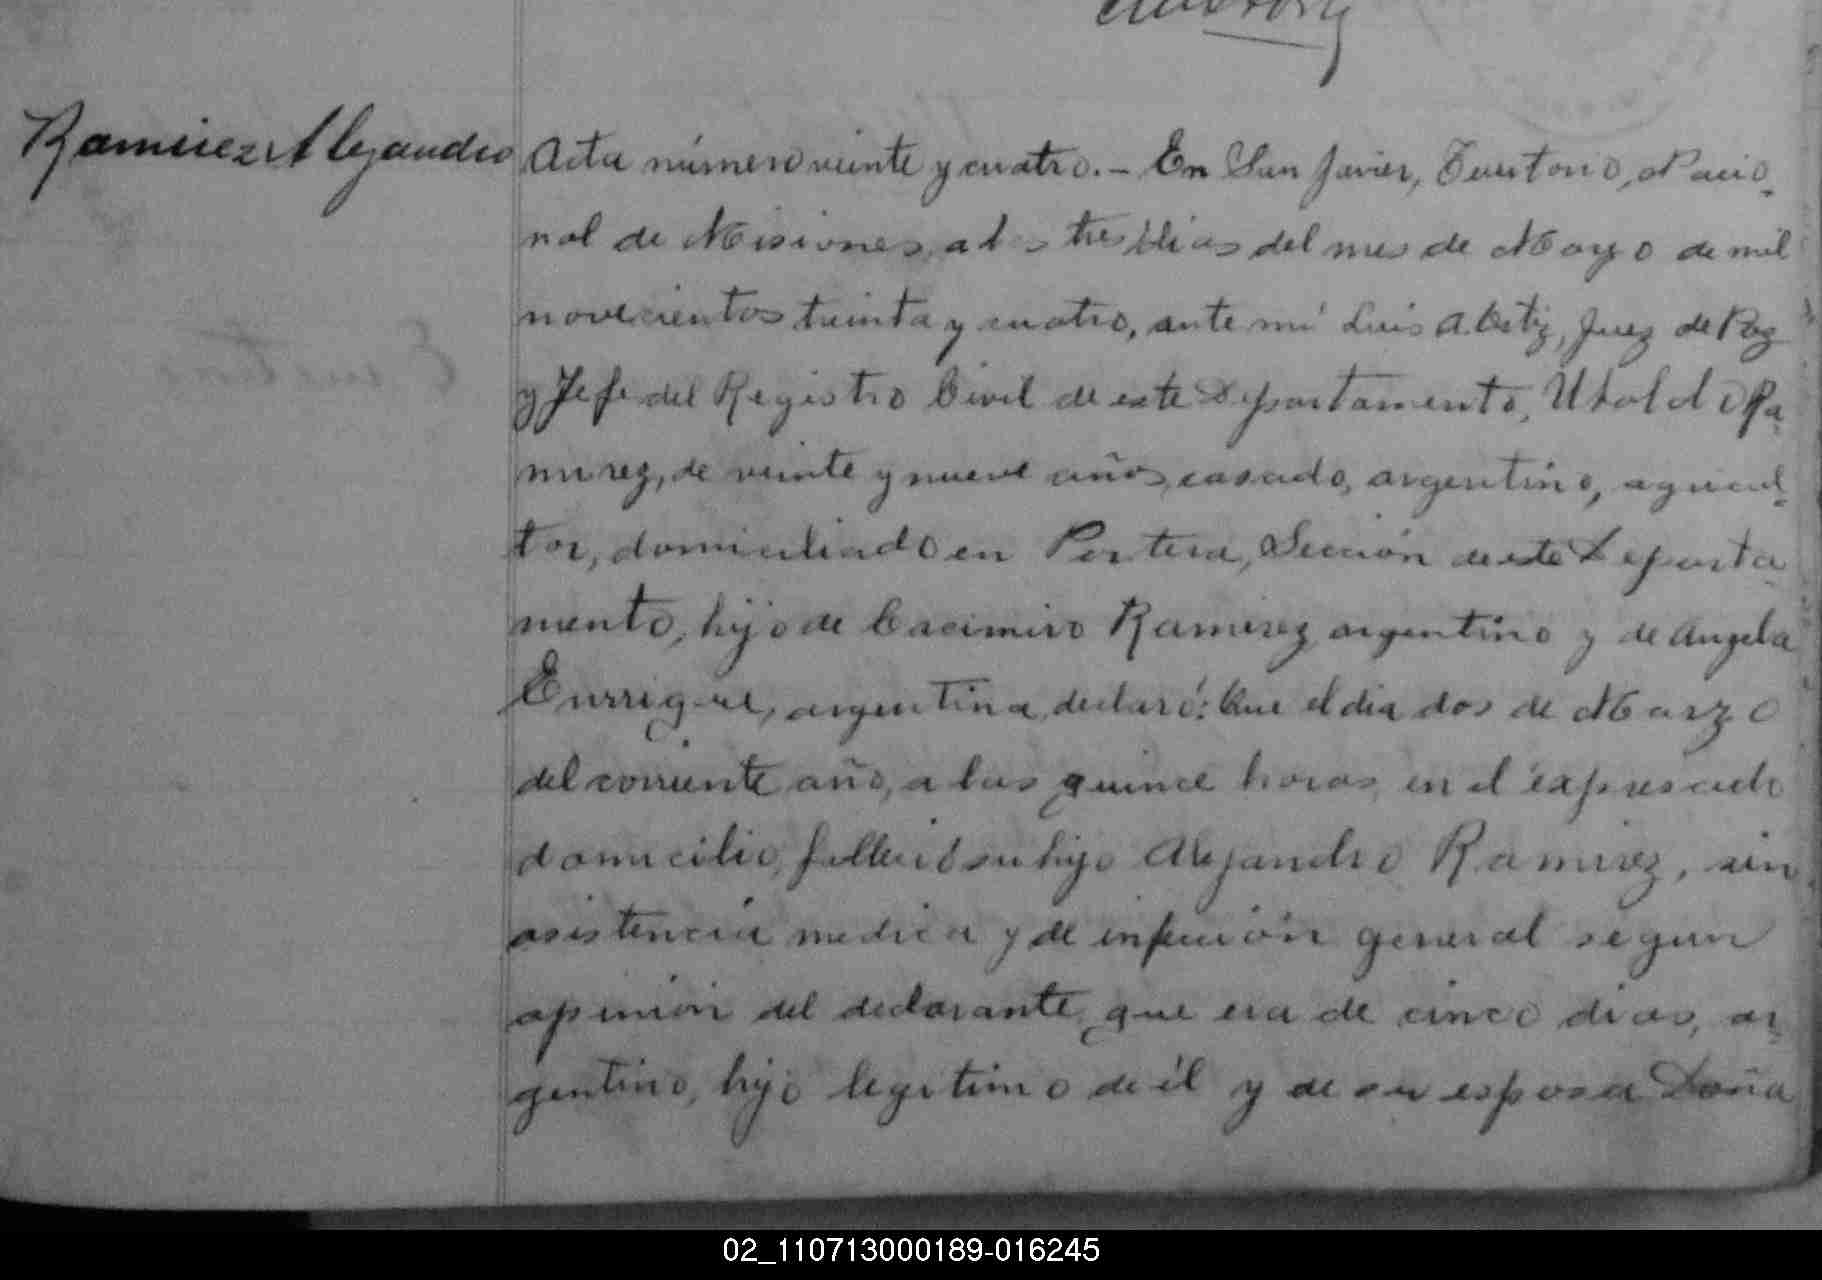 Ramirez Alejandro
Acta número veinte y cuatro.- En San Javier, Territorio, Nacio-
nal de Misiones, a los tres dias del mes de Mayo de mil
novecientos treinta y cuatro, ante mi Luis A. Ortiz, Juez de Paz
y Jefe del Registro Civil de este Departamento, Ubaldo Ra-
mirez, de veinte y nueve años, casado, argentino, agricul-
tor, domiciliado en Portera, Sección de este Departa-
mento, hijo de Casimiro Ramirez argentino y de Angela
argentina, declaró: Que el dia dos de Marzo
del corriente año, a las quince horas, en el expresado
domicilio, falleció su hijo Alejandro Ramirez, sin
asistencia medica y de infección general segun
opinión del declarante, que era de cinco dias, ar-
gentino, hijo legitimo de él y de su esposa Doña
02_110713000189-016245